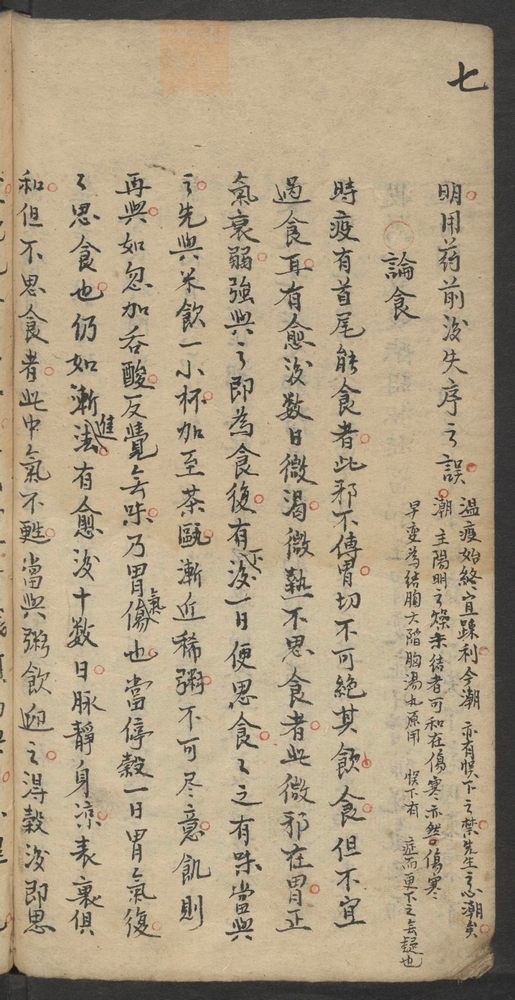 七
明用药前後失序之誤
温疫始終宜疎利今潮 亦有悞下之禁先生忘潮矣
潮主陽明之燥未结者可和在傷寒亦然傷寒
早变為结胸大陷胸湯丸原用 悞下有 症而更下之去疑也
論食
時疫有首尾能食者此邪不傳胃切不可絶其飲食但不宜
過食耳有愈後数日微渴微熱不思食者此微邪在胃正
氣衰弱強與之即為食復有下後一日便思食之之有味當與
之先與米飲一小杯加至茶甌漸近稀粥不可尽意飢則
再與如忽加吞酸反覺無味乃胃氣傷也當停穀一日胃氣復
之思食也仍如漸進法有愈後十数日脉靜身凉表裏俱
和但不思食者此中氣不甦當與粥飲迎之得穀後即思